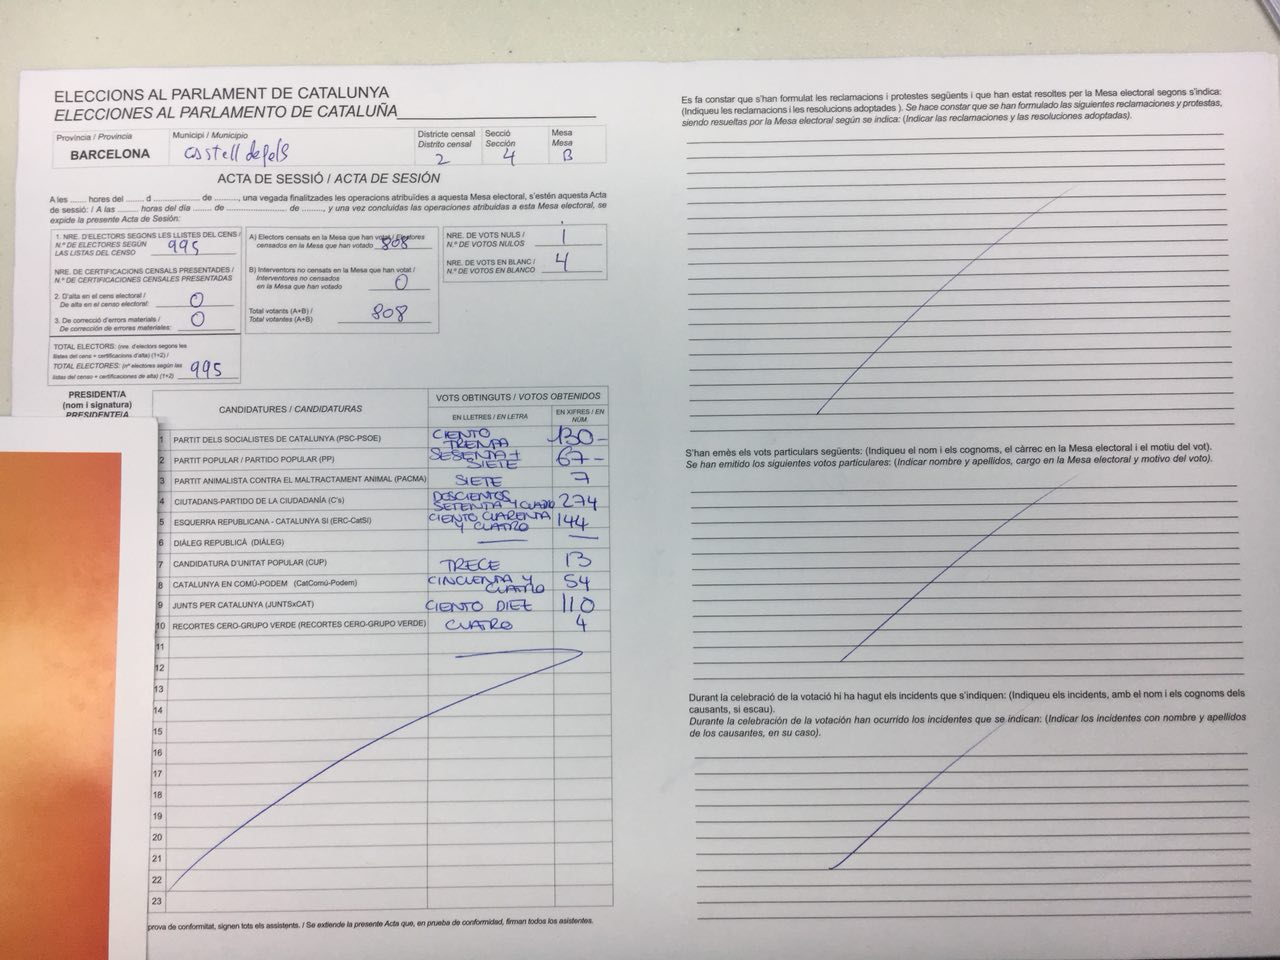 ELECCIONS AL PARLAMENT DE CATALUNYA
ELECCIONES AL PARLAMENTO DE CATALUÑA
Província / Provincia
BARCELONA
Municipi / Municipio
Castelldefels
Districte censal
Distrito censal
2
Secció
Sección
4
Mesa
Mesa
B
ACTA DE SESSIÓ / ACTA DE SESIÓN
A les ...... hores del ...... d .................... de ........, una vegada finalitzades les operacions atribuïdes a aquesta Mesa electoral, s'estén aquesta Acta
de sessió: / A las ....... horas del día ...... de .................... de ......., y una vez concluidas las operaciones atribuidas a esta Mesa electoral, se
expide la presente Acta de Sesión:
1. NRE. D'ELECTORS SEGONS LES LLISTES DEL CENS /
N.º DE ELECTORES SEGÚN
LAS LISTAS DEL CENSO 995
NRE. DE CERTIFICACIONS CENSALS PRESENTADES /
N.º DE CERTIFICACIONES CENSALES PRESENTADAS
2. D'alta en el cens electoral /
De alta en el censo electoral: 0
3. De correcció d'errors materials /
De corrección de errores materiales: 0
TOTAL ELECTORS: (nre. d'electors segons les
llistes del cens + certificacions d'alta) (1+2) /
TOTAL ELECTORES: (nº electores según las
listas del censo + certificaciones de alta) (1+2) 995
A) Electors censats en la Mesa que han votat / Electores
censados en la Mesa que han votado 808
B) Interventors no censats en la Mesa que han votat /
Interventores no censados
en la Mesa que han votado 0
Total votants (A+B) /
Total votantes (A+B) 808
NRE. DE VOTS NULS /
N.º DE VOTOS NULOS 1
NRE. DE VOTS EN BLANC /
N.º DE VOTOS EN BLANCO 4
PRESIDENT/A
(nom i signatura)
PRESIDENTE/A
CANDIDATURES / CANDIDATURAS
VOTS OBTINGUTS / VOTOS OBTENIDOS
EN LLETRES / EN LETRA
EN XIFRES / EN NÚM.
1 PARTIT DELS SOCIALISTES DE CATALUNYA (PSC-PSOE) CIENTO TRENTA 130-
2 PARTIT POPULAR / PARTIDO POPULAR (PP) SESENTA Y SIETE 67-
3 PARTIT ANIMALISTA CONTRA EL MALTRACTAMENT ANIMAL (PACMA) SIETE 7
4 CIUTADANS-PARTIDO DE LA CIUDADANÍA (C's) DOSCIENTOS SETENTA Y CUATRO 274
5 ESQUERRA REPUBLICANA - CATALUNYA SI (ERC-CatSI) CIENTO CUARENTA Y CUATRO 144
6 DIÀLEG REPUBLICÀ (DIÀLEG) — —
7 CANDIDATURA D'UNITAT POPULAR (CUP) TRECE 13
8 CATALUNYA EN COMÚ-PODEM (CatComú-Podem) CINCUENTA Y CUATRO 54
9 JUNTS PER CATALUNYA (JUNTSxCAT) CIENTO DIEZ 110
10 RECORTES CERO-GRUPO VERDE (RECORTES CERO-GRUPO VERDE) CUATRO 4
11
12
13
14
15
16
17
18
19
20
21
22
23
prova de conformitat, signen tots els assistents. / Se extiende la presente Acta que, en prueba de conformidad, firman todos los asistentes.
Es fa constar que s'han formulat les reclamacions i protestes següents i que han estat resoltes per la Mesa electoral segons s'indica:
(Indiqueu les reclamacions i les resolucions adoptades ). Se hace constar que se han formulado las siguientes reclamaciones y protestas,
siendo resueltas por la Mesa electoral según se indica: (Indicar las reclamaciones y las resoluciones adoptadas).
S'han emès els vots particulars següents: (Indiqueu el nom i els cognoms, el càrrec en la Mesa electoral i el motiu del vot).
Se han emitido los siguientes votos particulares: (Indicar nombre y apellidos, cargo en la Mesa electoral y motivo del voto).
Durant la celebració de la votació hi ha hagut els incidents que s'indiquen: (Indiqueu els incidents, amb el nom i els cognoms dels
causants, si escau).
Durante la celebración de la votación han ocurrido los incidentes que se indican: (Indicar los incidentes con nombre y apellidos
de los causantes, en su caso).